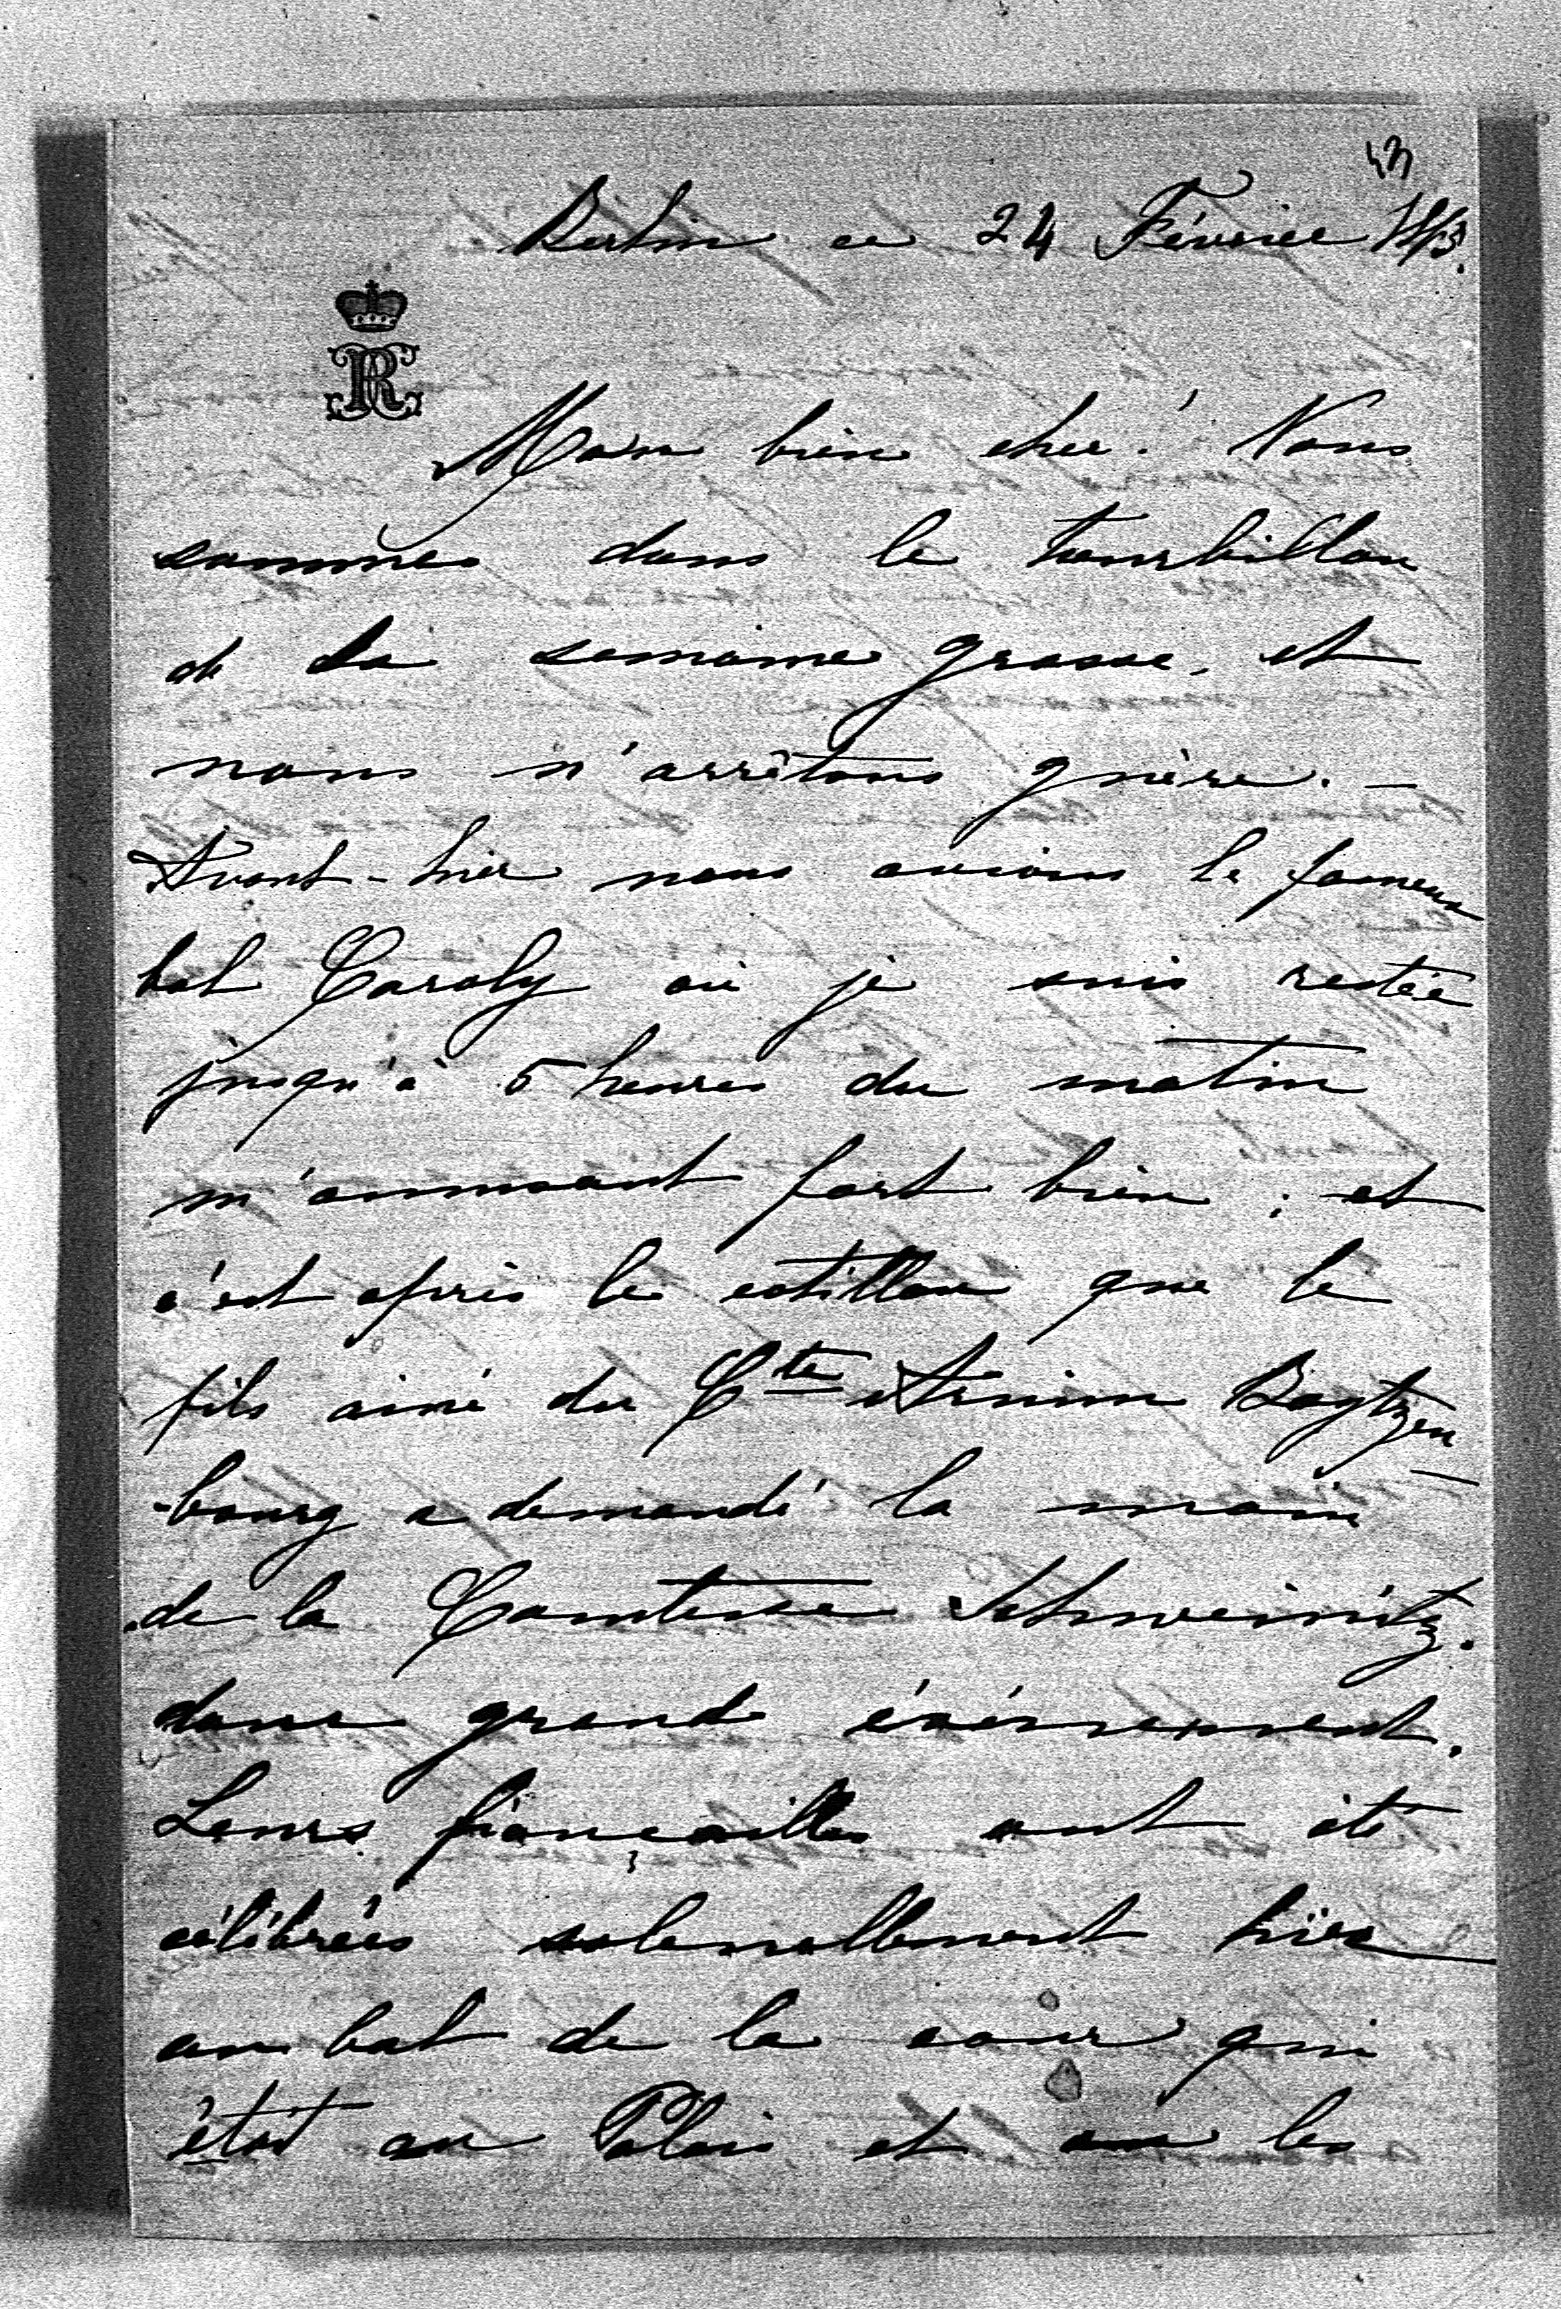 53
Berlin ce 24 Février 1873.
Mon bien cher! Nous
sommes dans le tourbillon
de la semaine grasse, et
nous n'arrêtons guère. —
Avant-hier nous avions le fameux
bal Caroly où je suis restée
jusqu'à 5 heures du matin
m'amusant fort bien; et
c'est après le cotillon que le
fils ainé du Cte Arnim Boytzen-
-bourg a demandé la main
de la Comtesse Schweinitz.
donc grand événement.
Leurs fiançailles ont été
célébrées solennellement hier
au bal de la cour qui
était au Palais et les